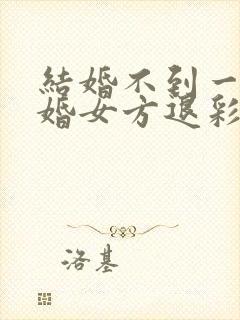 結婚不到一
婚女方退彩
洛基